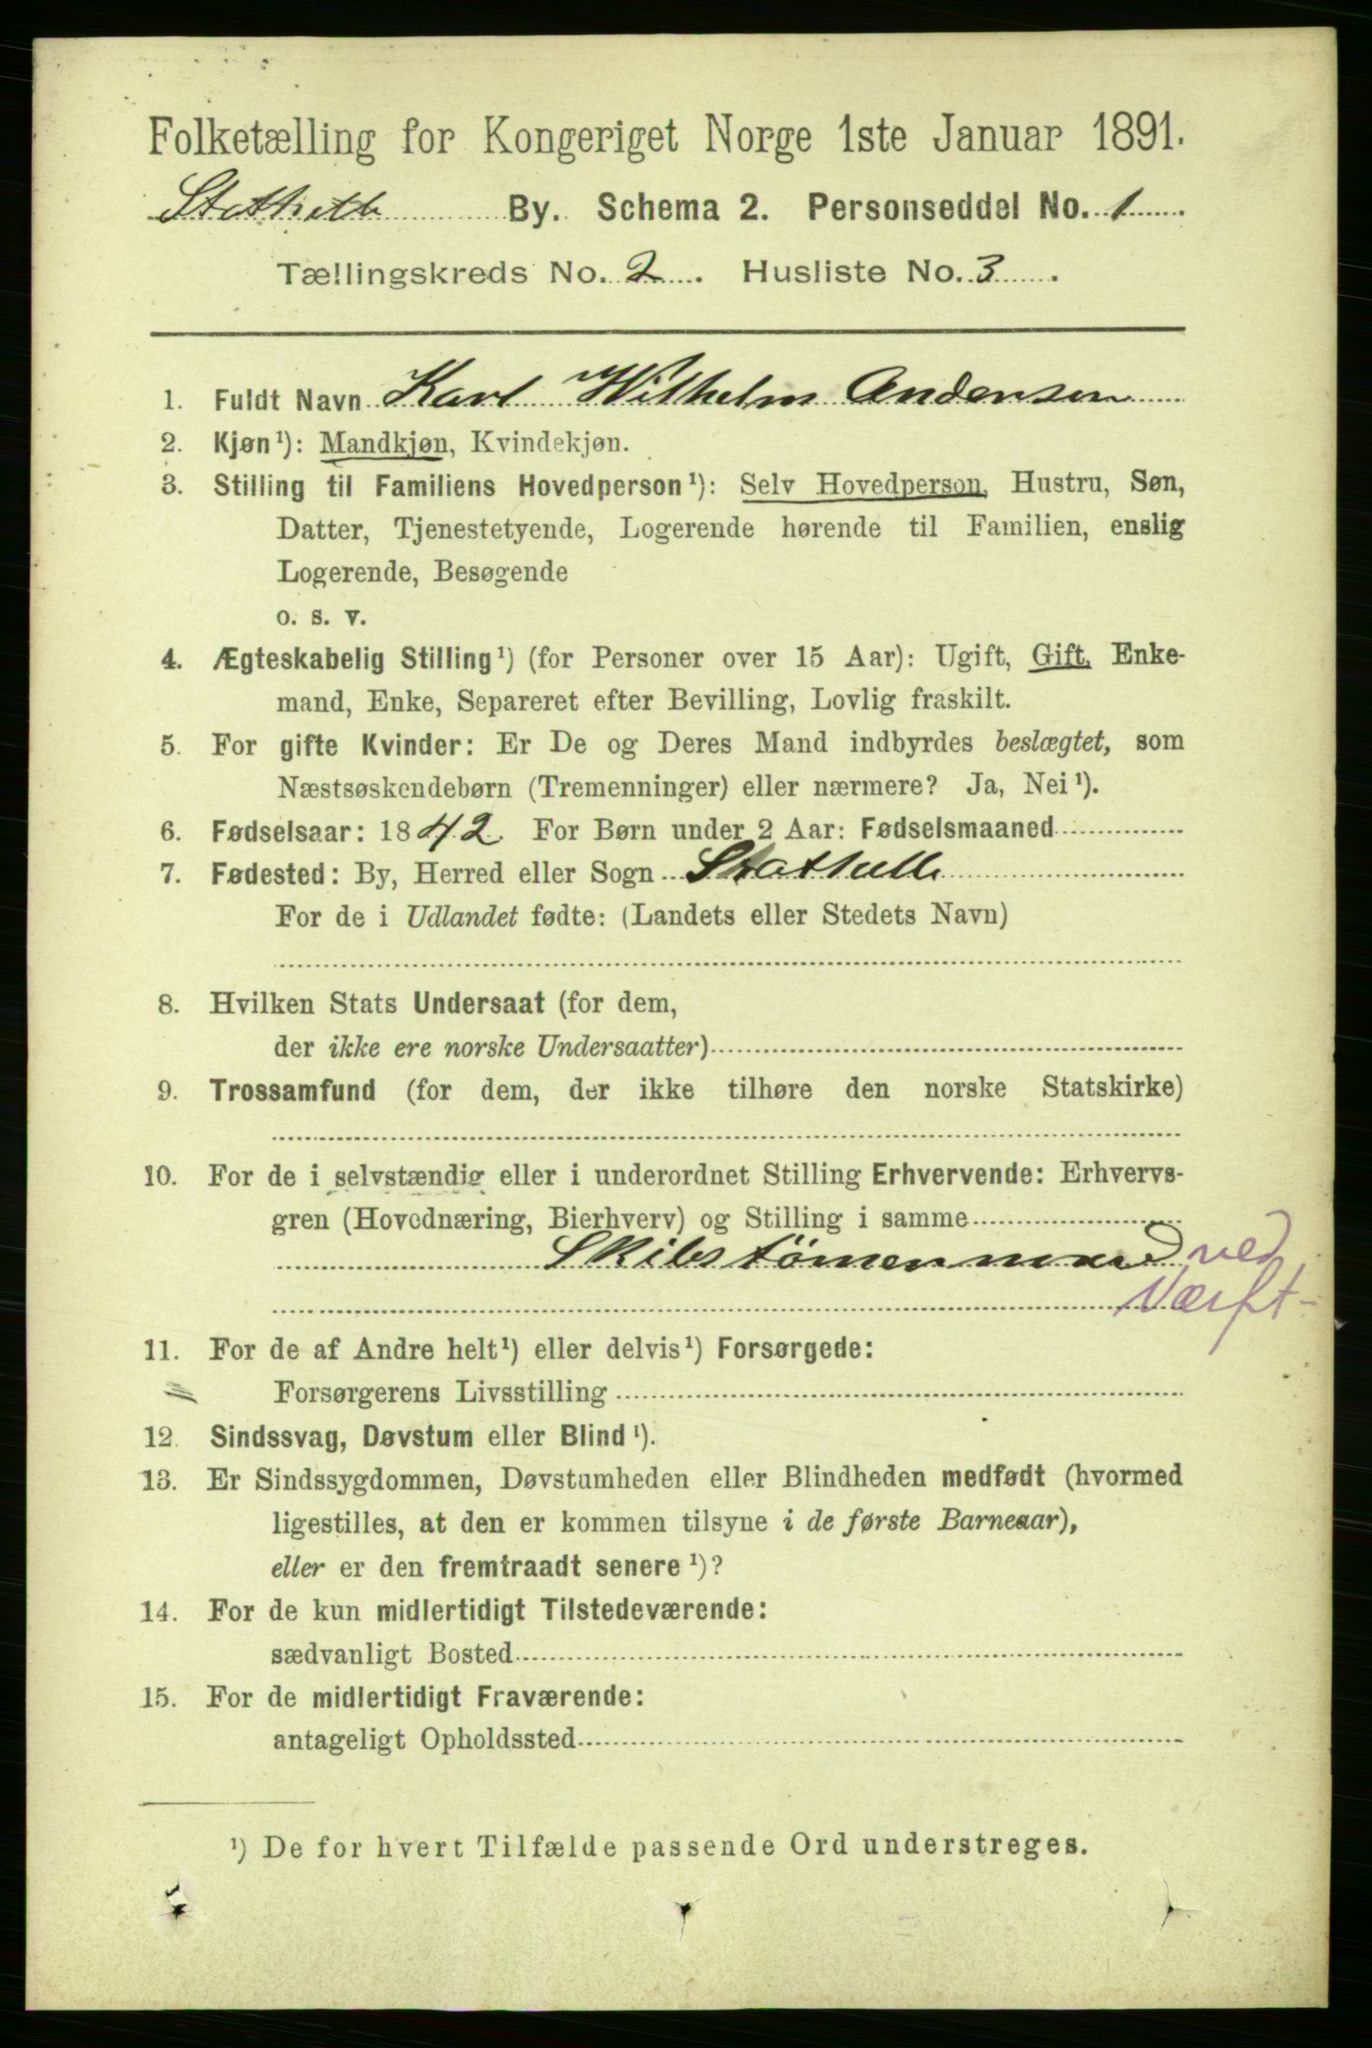 Folketælling for Kongeriget Norge 1ste Januar 1891.
Stathelle By. Schema 2. Personseddel No. 1
Tællingskreds No. 2. Husliste No. 3.
1. Fuldt Navn Karl Wilhelm Andersen
2. Kjøn¹): Mandkjøn, Kvindekjøn.
3. Stilling til Familiens Hovedperson¹): Selv Hovedperson, Hustru, Søn,
Datter, Tjenestetyende, Logerende hørende til Familien, enslig
Logerende, Besøgende
o. s. v.
4. Ægteskabelig Stilling¹) (for Personer over 15 Aar): Ugift, Gift, Enke-
mand, Enke, Separeret efter Bevilling, Lovlig fraskilt.
5. For gifte Kvinder: Er De og Deres Mand indbyrdes beslægtet, som
Næstsøskendebørn (Tremenninger) eller nærmere? Ja, Nei¹).
6. Fødselsaar: 1842 For Børn under 2 Aar: Fødselsmaaned
7. Fødested: By, Herred eller Sogn Stathelle
For de i Udlandet fødte: (Landets eller Stedets Navn)
8. Hvilken Stats Undersaat (for dem,
der ikke ere norske Undersaatter)
9. Trossamfund (for dem, der ikke tilhøre den norske Statskirke)
10. For de i selvstændig eller i underordnet Stilling Erhvervende: Erhvervs-
gren (Hovednæring, Bierhverv) og Stilling i samme
Skibstömenmand ved
Værft-
11. For de af Andre helt¹) eller delvis¹) Forsørgede:
Forsørgerens Livsstilling
12. Sindssvag, Døvstum eller Blind¹).
13. Er Sindssygdommen, Døvstumheden eller Blindheden medfødt (hvormed
ligestilles, at den er kommen tilsyne i de første Barneaar),
eller er den fremtraadt senere¹)?
14. For de kun midlertidigt Tilstedeværende:
sædvanligt Bosted
15. For de midlertidigt Fraværende:
antageligt Opholdssted
¹) De for hvert Tilfælde passende Ord understreges.